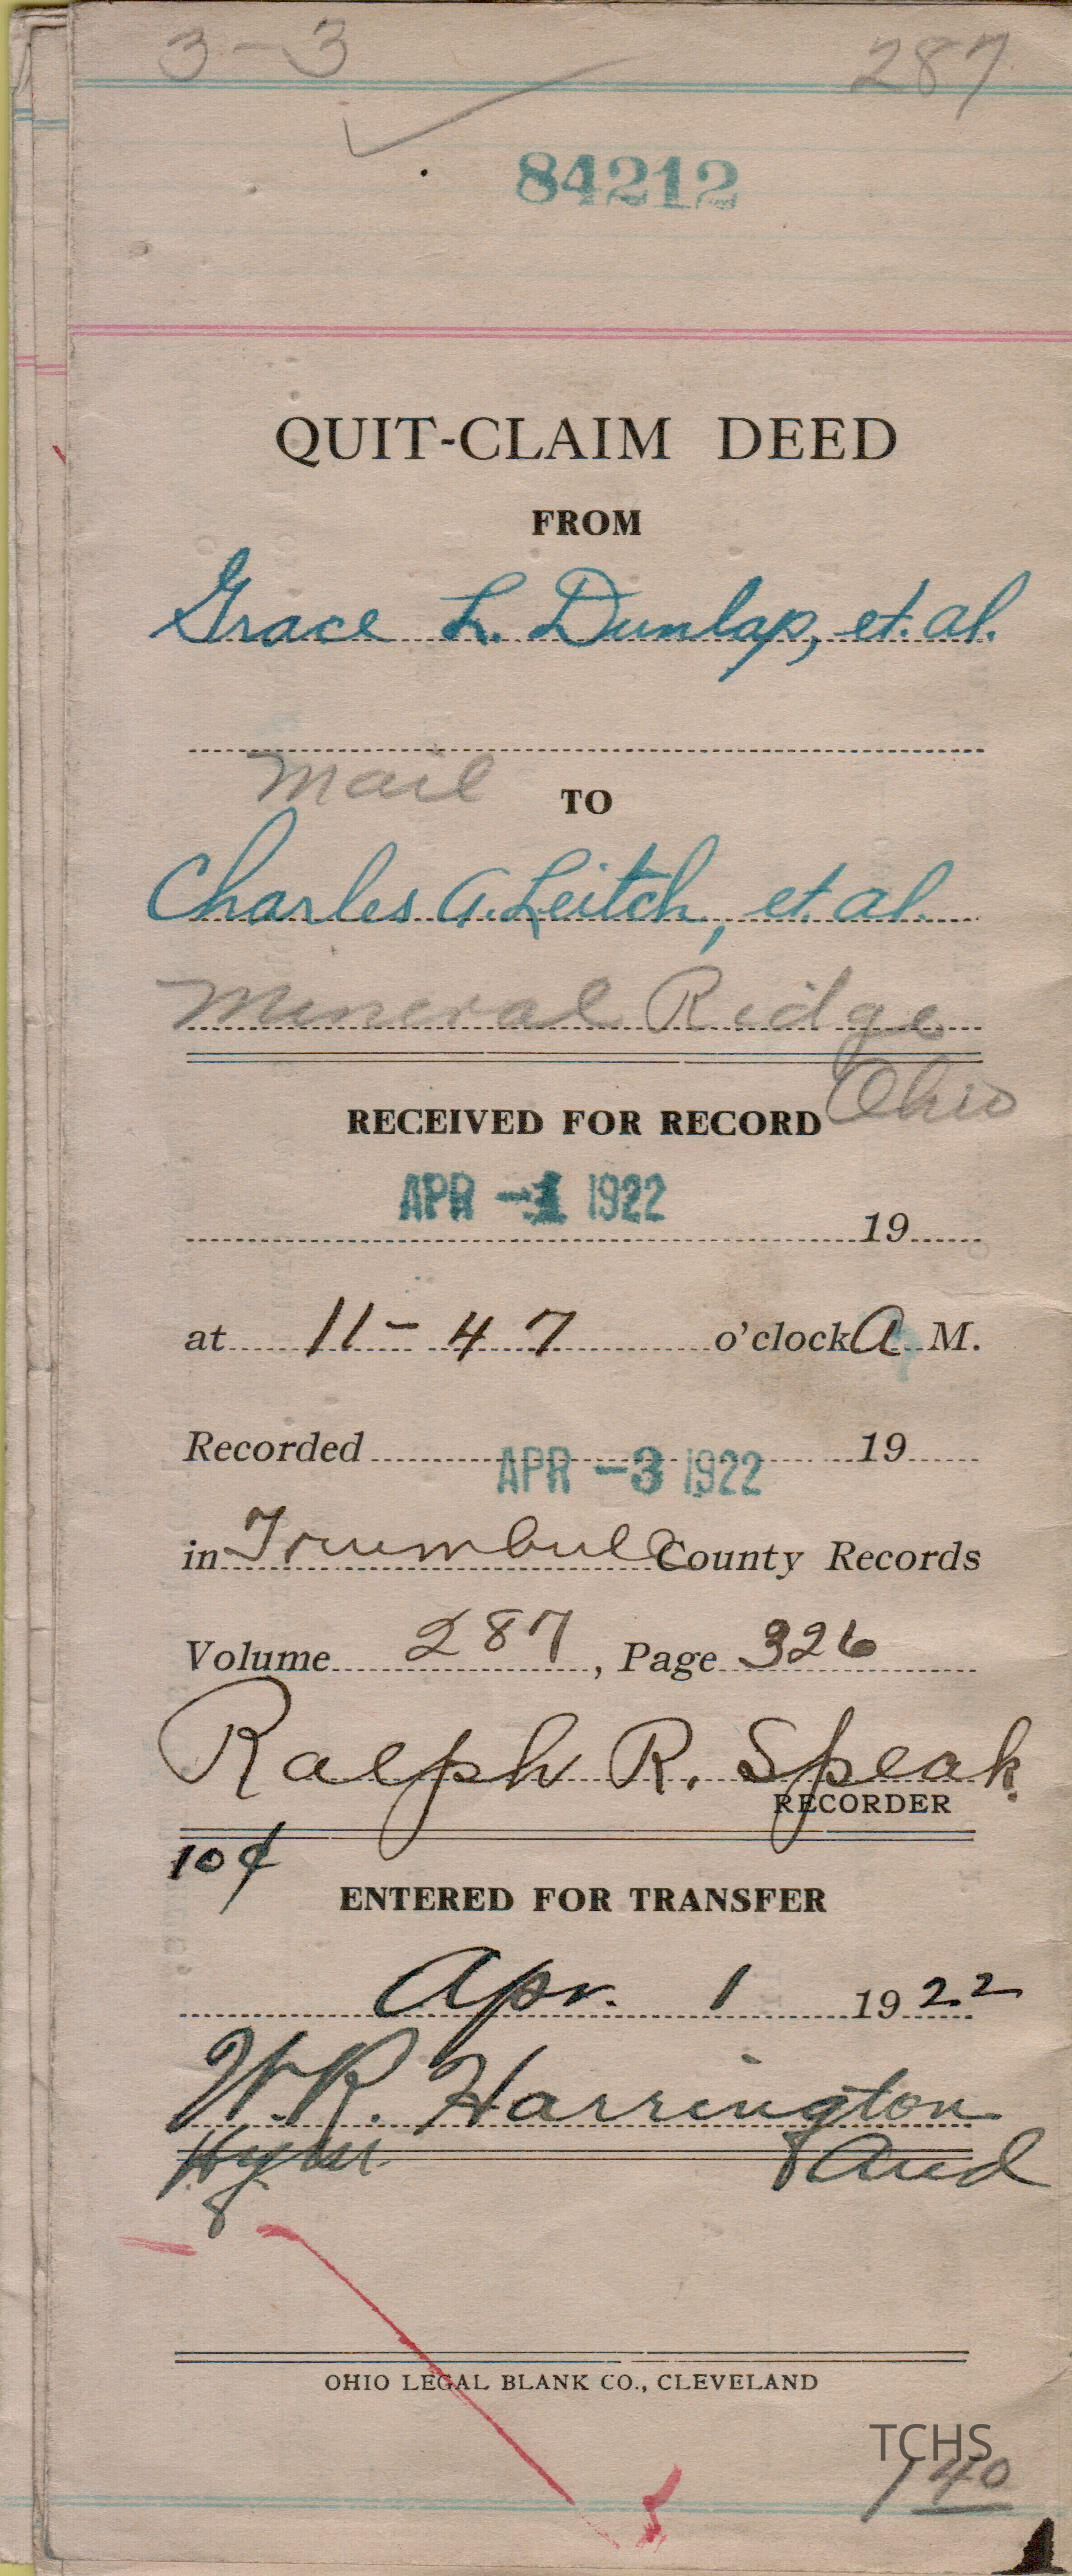 3-3 287
84212
QUIT-CLAIM DEED
FROM
Grace L. Dunlap, et. al.
Mail TO
Charles A. Leitch, et. al.
Mineral Ridge
Ohio
RECEIVED FOR RECORD
APR -1 1922
19
at 11-47 o'clock A M.
Recorded APR -3 1922 19
in Trumbull County Records
Volume 287, Page 326
Ralph R. Speak
RECORDER
10¢
ENTERED FOR TRANSFER
Apr. 1 1922
W.R. Harrington
Aud
OHIO LEGAL BLANK CO., CLEVELAND
TCHS
1 40